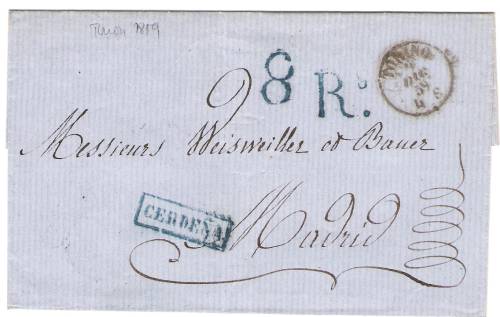 Turin 1859
8 Rs.
TORINO
DIC
59
Messieurs Weisweiller et Bauer
CERDEÑA
Madrid